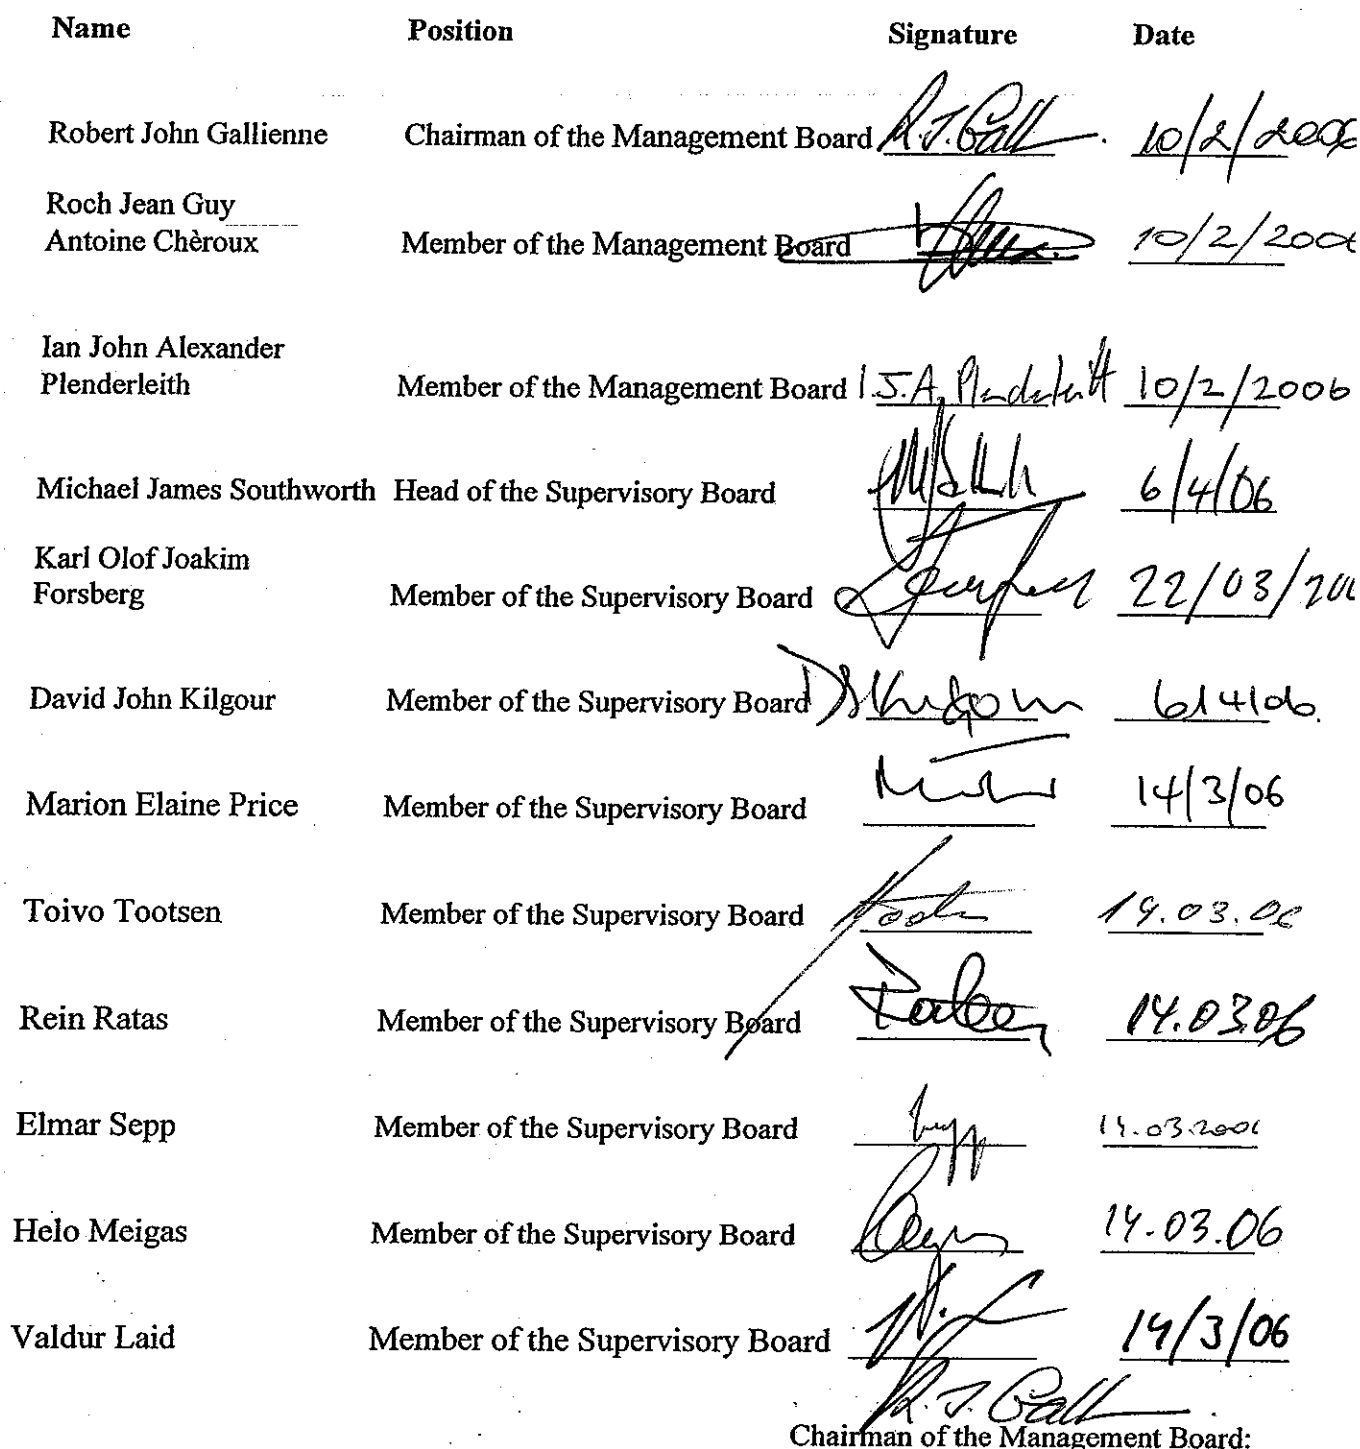 Name Position Signature Date
Robert John Gallienne Chairman of the Management Board R.J. Gall 10/2/2006
Roch Jean Guy
Antoine Chèroux Member of the Management Board 10/2/2006
Ian John Alexander
Plenderleith Member of the Management Board I.J.A. Plenderleith 10/2/2006
Michael James Southworth Head of the Supervisory Board 6/4/06
Karl Olof Joakim
Forsberg Member of the Supervisory Board 22/03/200
David John Kilgour Member of the Supervisory Board DJKilgour 6/4/06.
Marion Elaine Price Member of the Supervisory Board 14/3/06
Toivo Tootsen Member of the Supervisory Board 14.03.06
Rein Ratas Member of the Supervisory Board 14.03.06
Elmar Sepp Member of the Supervisory Board 14.03.2006
Helo Meigas Member of the Supervisory Board 14.03.06
Valdur Laid Member of the Supervisory Board 14/3/06
R.J. Gall
Chairman of the Management Board: